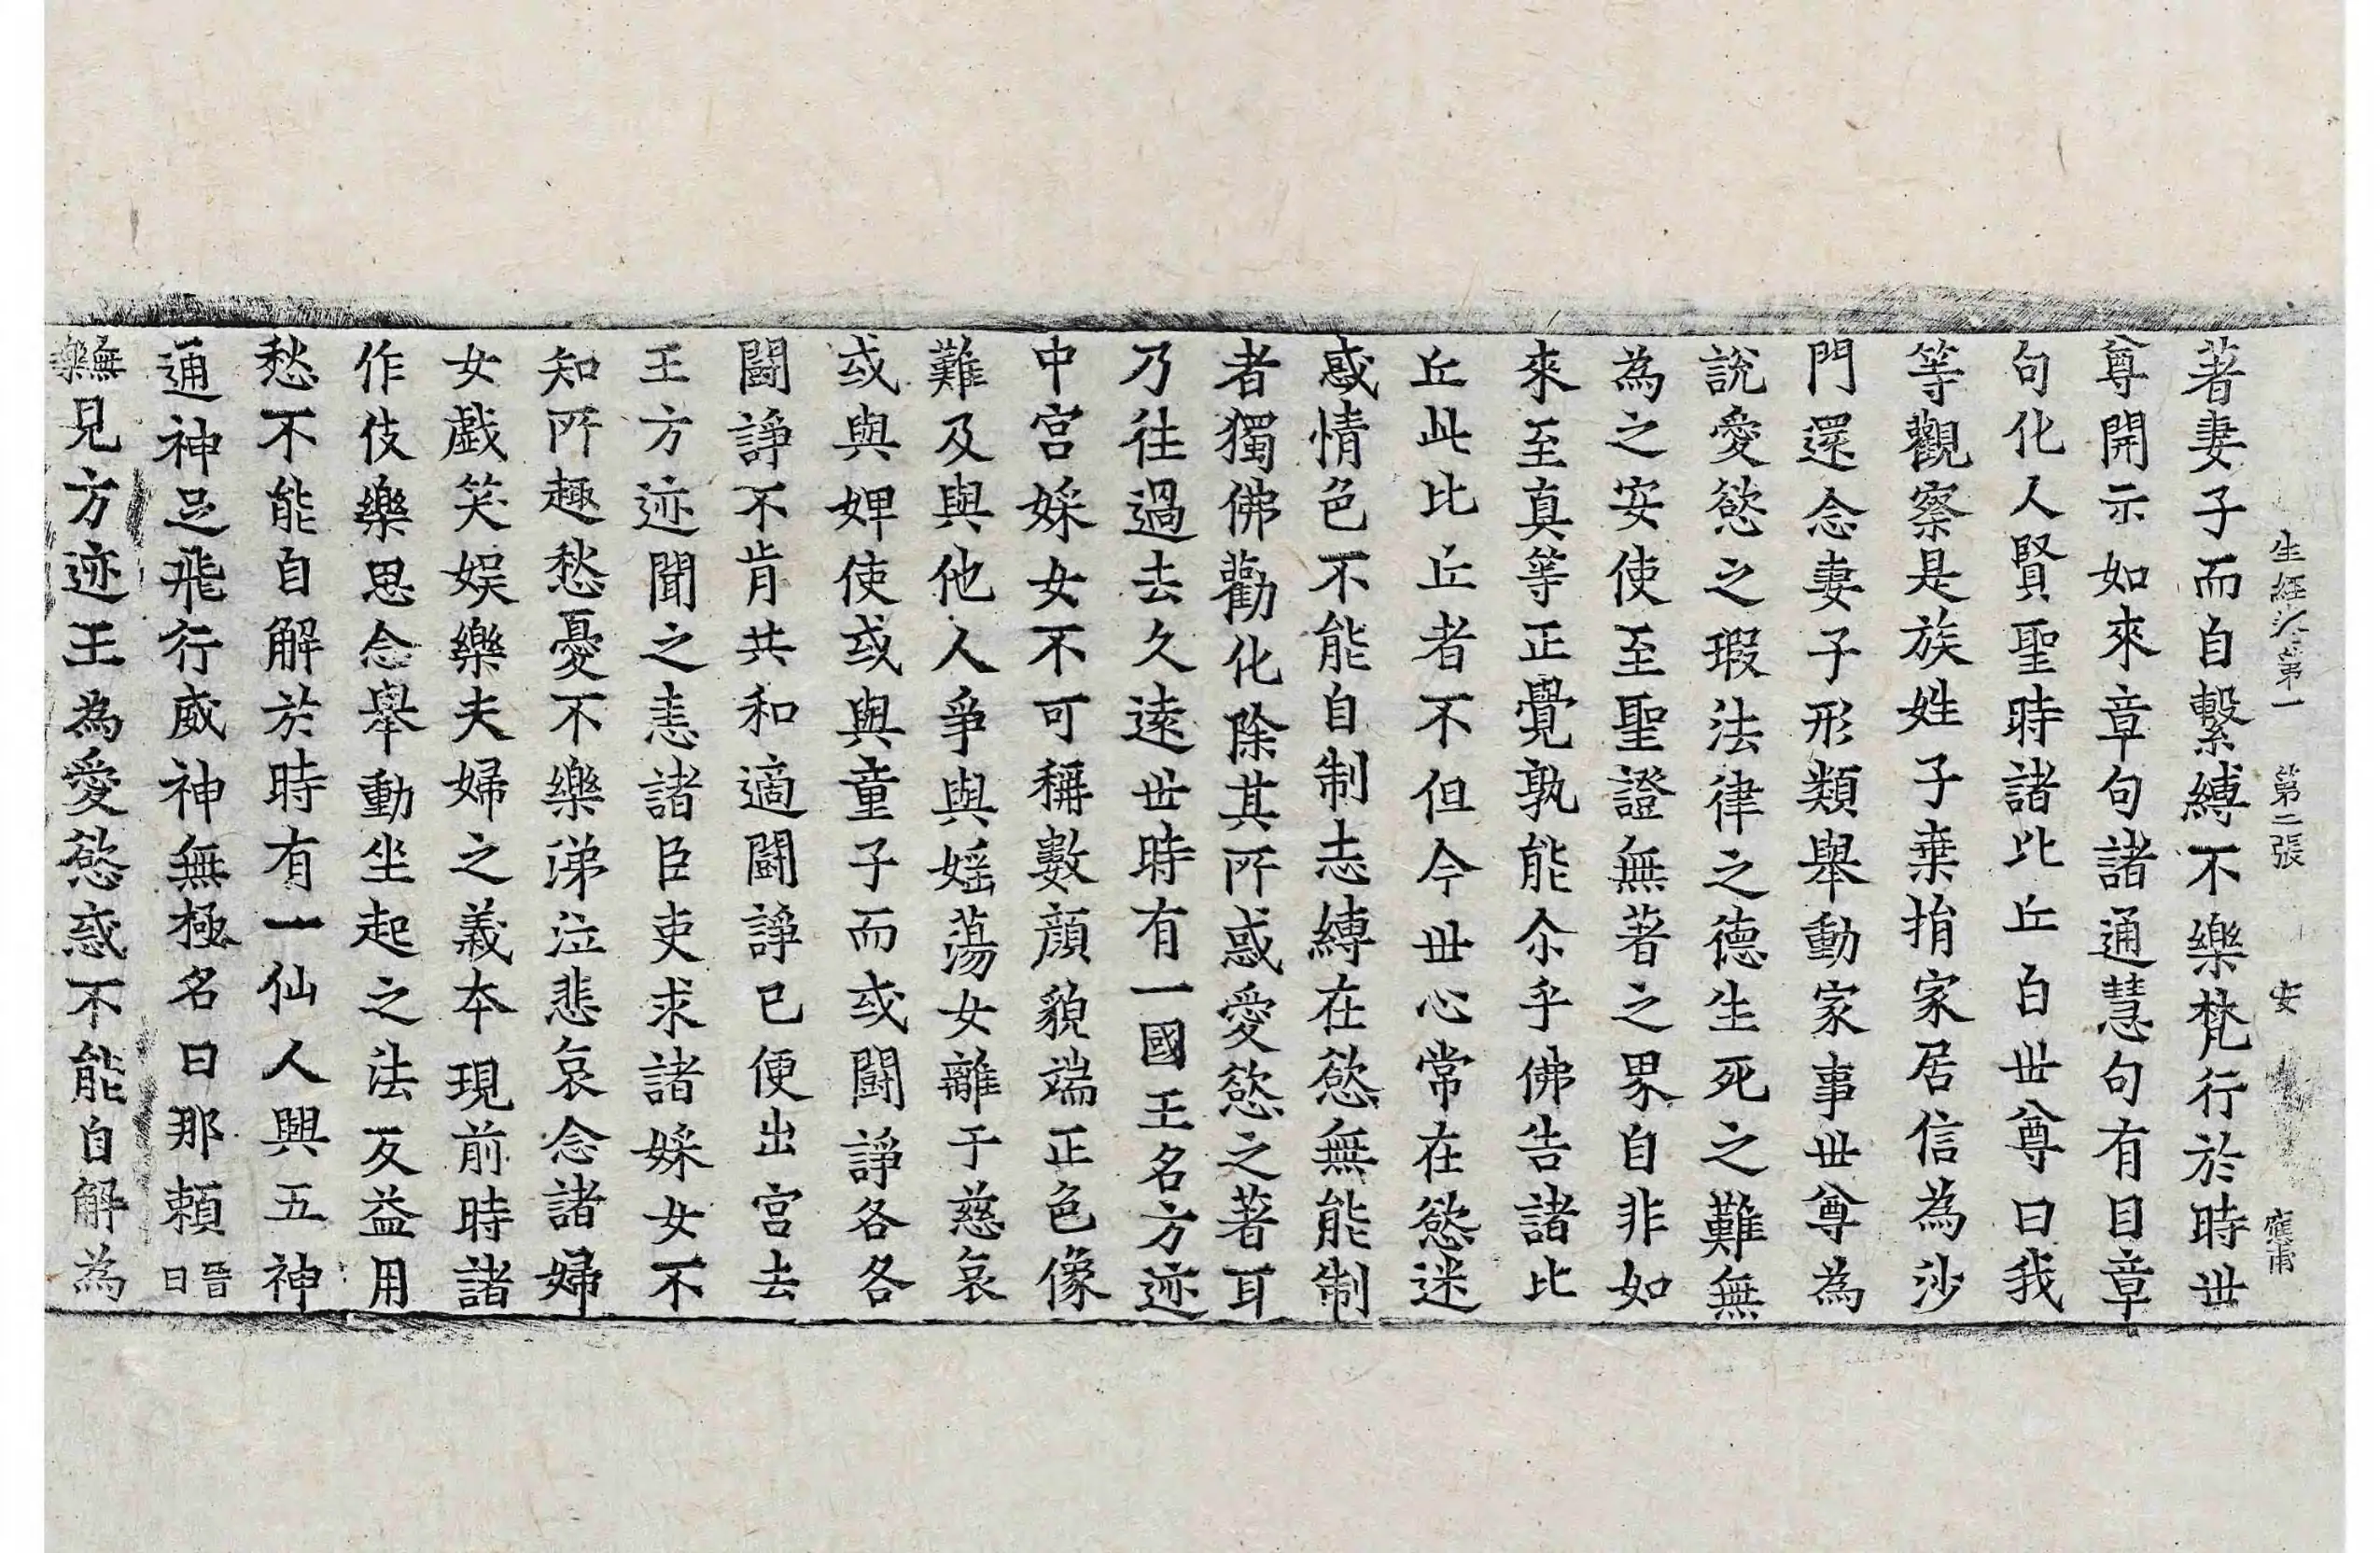 生經卷第一 第二張 安 應甫
著妻子而自繫縛不樂梵行於時世
尊開示如來章句諸通慧句有目章
句化人賢聖時諸比丘白世尊曰我
等觀察是族姓子棄捐家居信為沙
門還念妻子形類舉動家事世尊為
說愛慾之瑕法律之德生死之難無
為之安使至聖證無著之界自非如
來至真等正覺孰能尒乎佛告諸比
丘此比丘者不但今世心常在慾迷
惑情色不能自制志縛在慾無能制
者獨佛勸化除其所惑愛慾之著耳
乃往過去久遠世時有一國王名方迹
中宮婇女不可稱數顏貌端正色像
難及與他人爭與婬蕩女離于慈哀
或與婢使或與童子而或鬪諍各各
鬪諍不肯共和適鬪諍已便出宮去
王方迹聞之恚諸臣吏求諸婇女不
知所趣愁憂不樂涕泣悲哀念諸婦
女戲笑娛樂夫婦之義本現前時諸
作伎樂思念舉動坐起之法反益用
愁不能自解於時有一仙人興五神
通神足飛行威神無極名曰那賴晉曰
無樂見方迹王為愛慾惑不能自解為